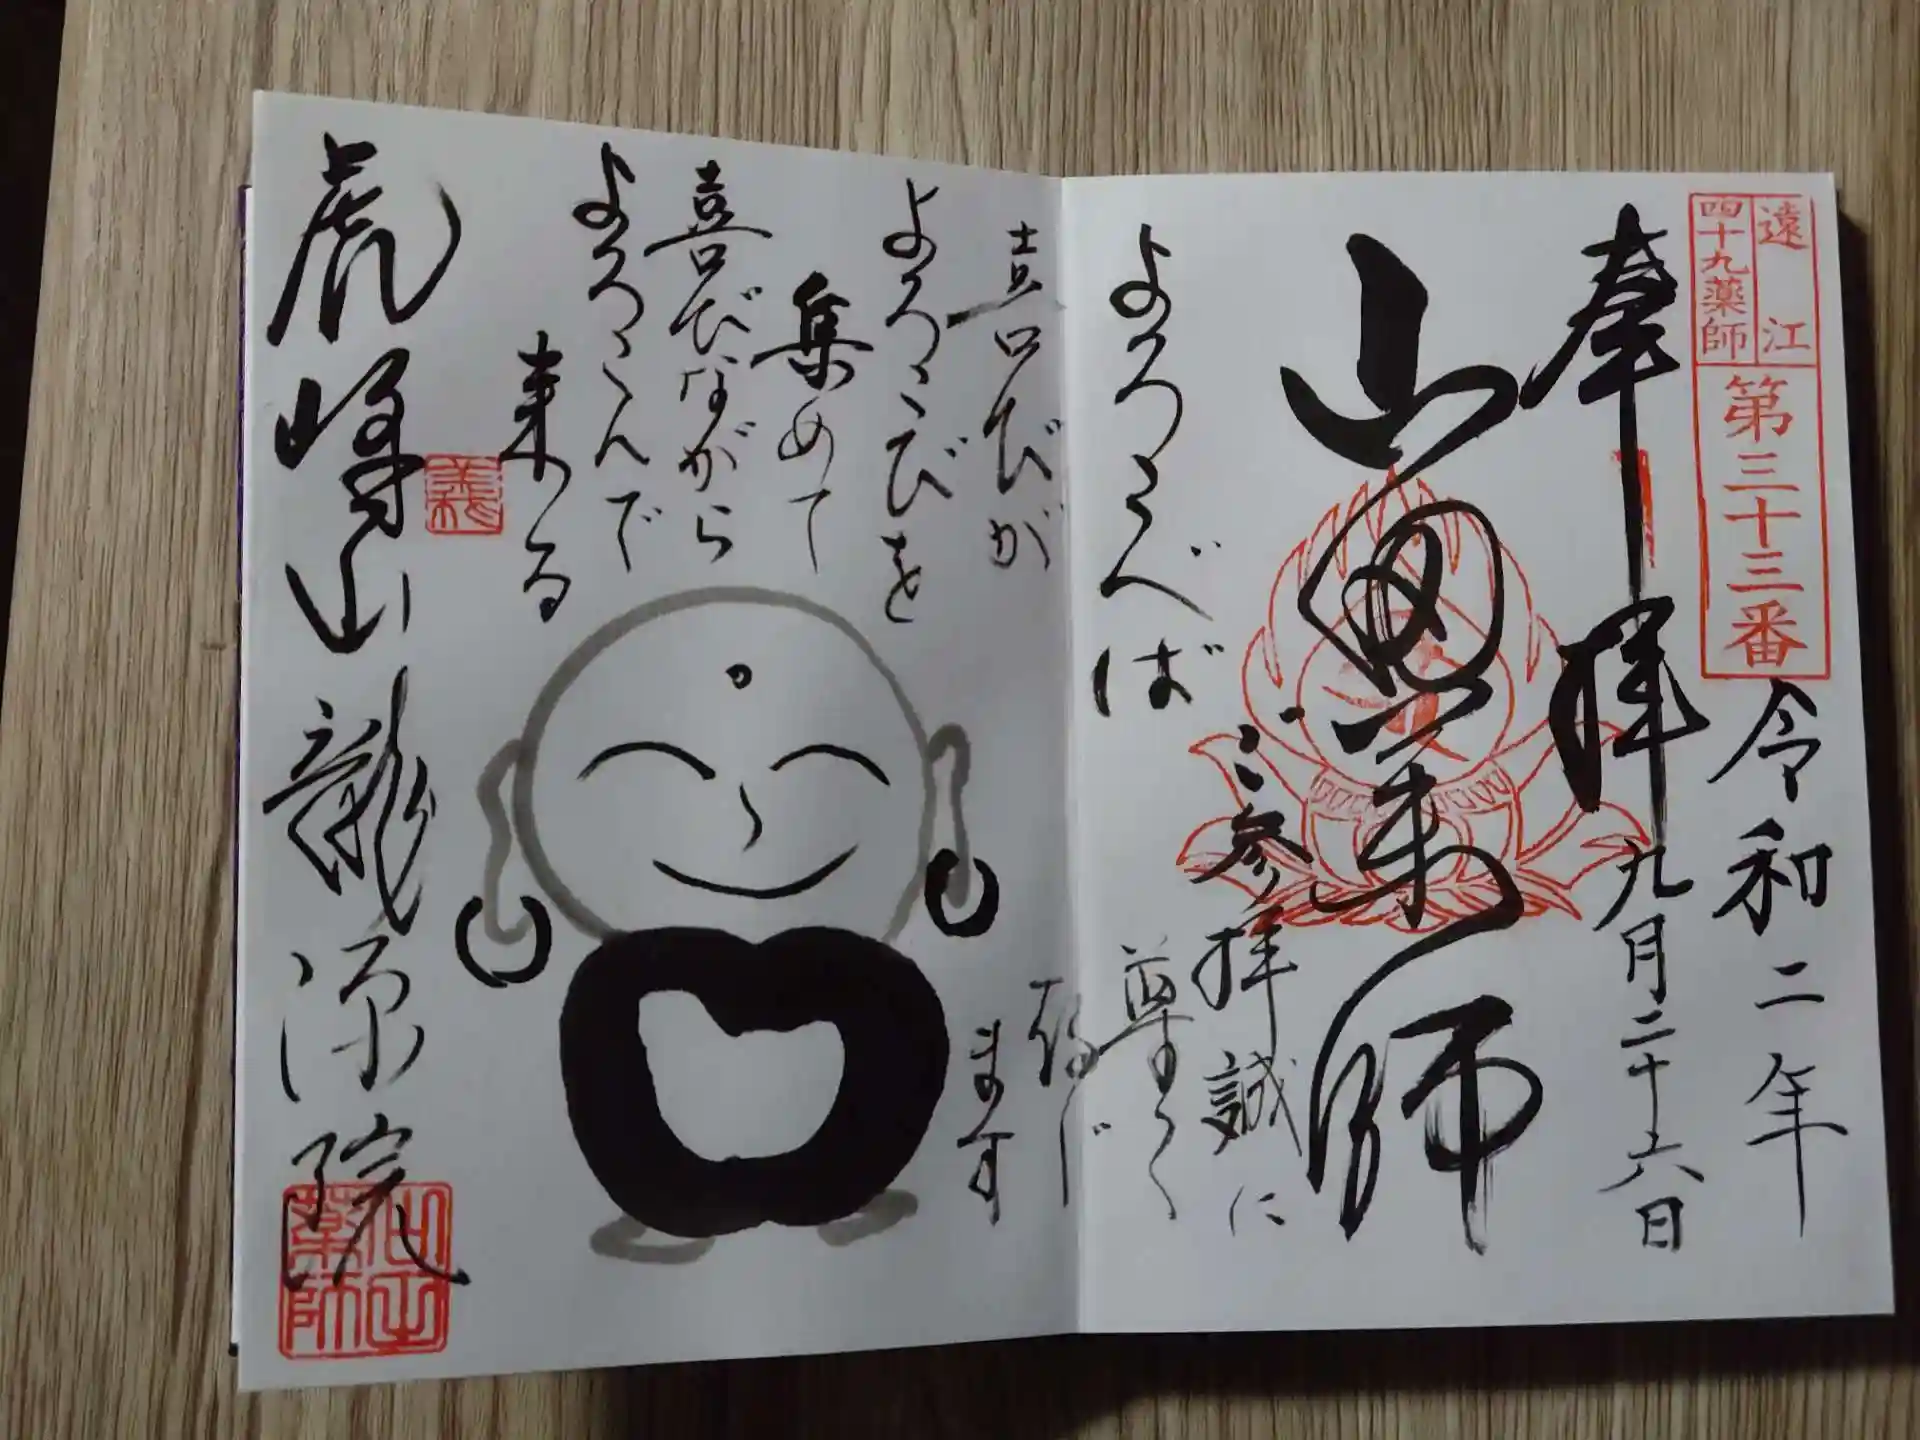 遠江
四十九薬師
第三十三番
令和二年
九月二十六日
奉拝
山
薬師
ご参拝誠に
尊く
存じ
ます
よろこべば
喜びが
よろこびを
集めて
喜びながら
よろこんで
来る
虎峰山龍源院
薬師